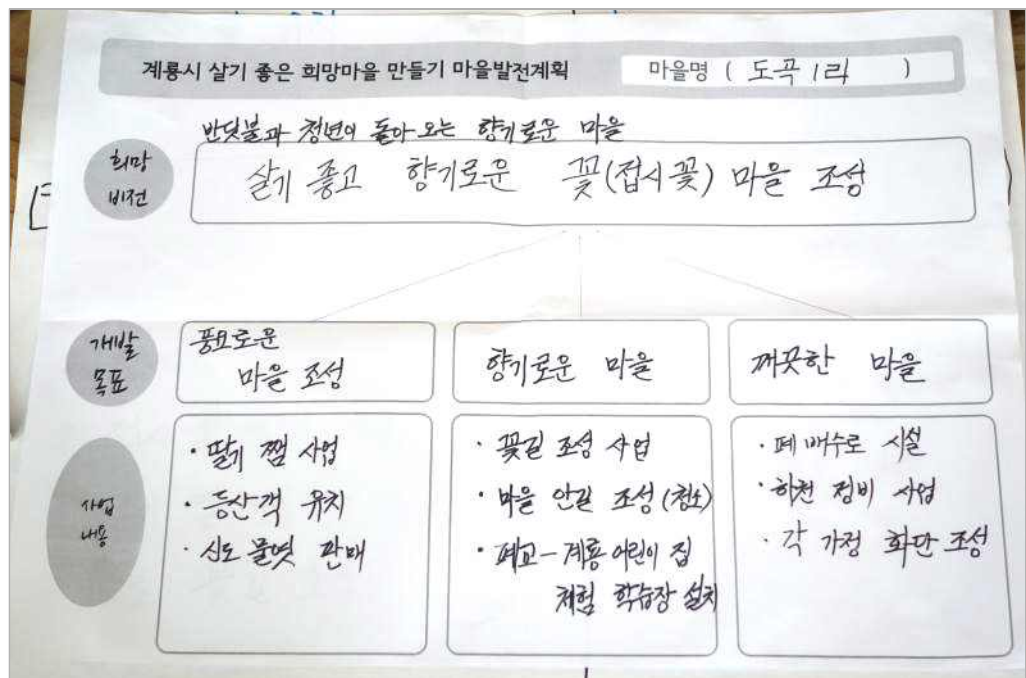 계룡시 살기 좋은 희망마을 만들기 마을발전계획
마을명 ( 도곡 1리 )
반딧불과 청년이 돌아 오는 향기로운 마을
희망
비전
살기 좋고 향기로운 꽃(접시꽃) 마을 조성
개발
목표
풍요로운
마을 조성
향기로운 마을
깨끗한 마을
사업
내용
· 딸기 쨈 사업
· 등산객 유치
· 신도 물엿 판매
· 꽃길 조성 사업
· 마을 안길 조성 (청소)
· 폐교 - 계룡 어린이 집
체험 학습장 설치
· 폐 배수로 시설
· 하천 정비 사업
· 각 가정 화단 조성